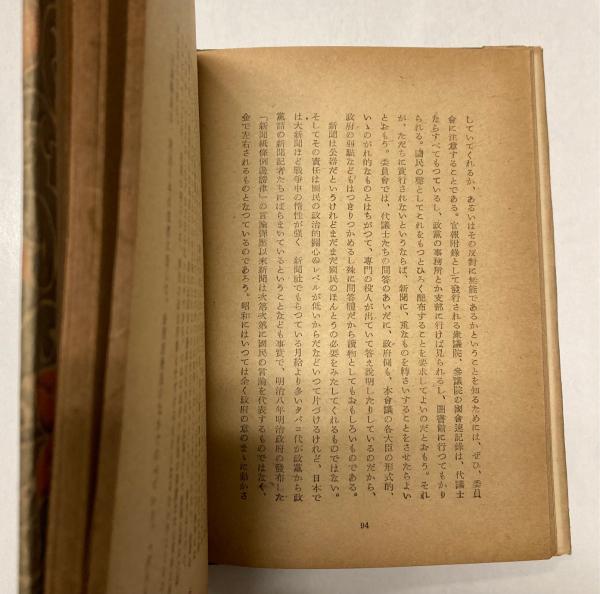 していてくれるか、あるいはその反對に無能であるかということを知るためには、ぜひ、委員
會に注意することである。官報附錄として發行される衆議院、參議院の國會速記錄は、代議士
ならすべてもつているし、政黨の事務所とか支部に行けば見られるし、圖書館に行つてもかり
られる。國民の聲としてこれをもつとひろく配布することを要求してよいのだとおもう。それ
が、ただちに實行されないというならば、新聞に、重なものを轉さいすることをさせたらよい
とおもう。委員會では、代議士たちの問答のあいだに、政府側も、本會議の各大臣の形式的、
いいのがれ的なものとはちがつて、專門の役人が出ていて答え說明したりしているのだから、
政府の弱點などもはつきりつかめるし殊に問答體だから讀物としてもおもしろいものである。
新聞は公器だというけれどまだまだ國民のほんとうの必要をみたしてくれるものではない。
そしてその責任は國民の政治的關心のレベルが低いからだなどいつて片づけるけれど、日本で
は大新聞ほど戰爭中の惰性が强く、新聞社でもらつている月給より多いタバコ代が政黨から政
黨詰の新聞記者たちにばらまいているということなども事實で、明治八年明治政府の發布した
「新聞紙條例讒謗律」の言論彈壓以來新聞は次第次第に國民の言論を代表するものではなく、
金で左右されるものとなつているのであろう。昭和にはいつては全く政府の意のまゝに動かさ
94